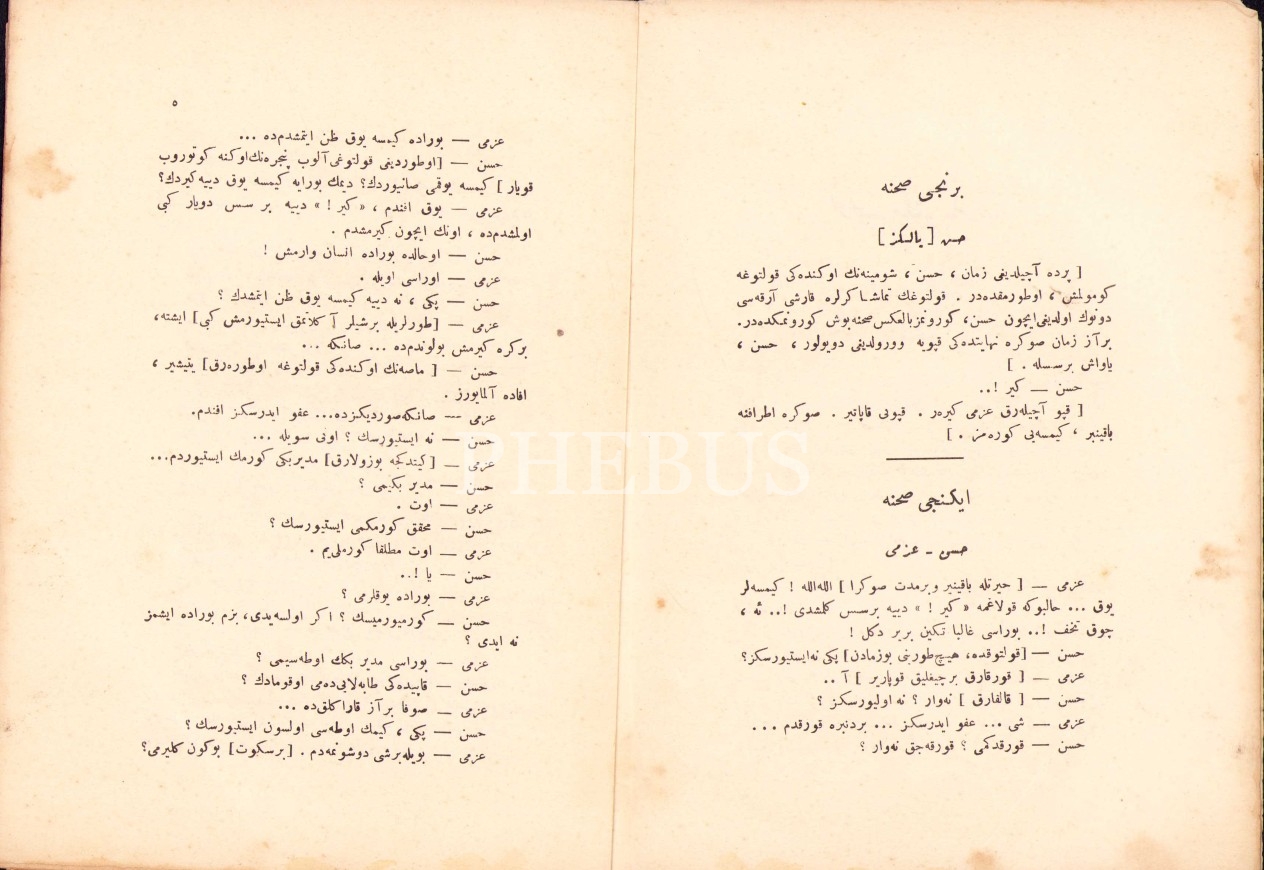 برنجی صحنه
حسن [ یالکز ]
[ پرده آچیلدیغی زمان ، حسن ، شومینه‌نك اوكنده‌كی قولتوغه
كومولمش ، اوطورمقده‌در . قولتوغك تماشاكرلره قارشی آرقه‌سی
دونوك اولدیغی‌ایچون حسن، كورونمز بالعكس صحنه بوش كورونمكده‌در.
برآز زمان صوكره نهایتده‌كی قپویه وورولدیغی دویولور ، حسن ،
یاواش برسسله . ]
حسن — كیر !..
[ قپو آچیله‌رق عزمی كیره‌ر . قپویی قاپاتیر . صوكره اطرافنه
باقینیر ، كیمسه‌یی كوره‌مز . ]
ایكنجی صحنه
حسن - عزمی
عزمی — [ حیرتله باقینیر وبرمدت صوكرا ] الله‌الله ! كیمسه‌لر
یوق ... حالبوكه قولاغمه « كیر ! » دییه برسس كلمشدی !.. نه ،
چوق تحف !.. بوراسی غالبا تكین بریر دكل !
حسن — [قولتوقده، هیچ طورینی بوزمادن] پكی نه‌ایستیورسكز؟
عزمی — [ قورقارق برچیغلیق قوپاریر ] آ ..
حسن — [ قالقارق ] نه‌وار ؟ نه اولیورسكز ؟
عزمی — شی ... عفو ایدرسكز ... بردنبره قورقدم ...
حسن — قورقدكمی ؟ قورقه‌جق نه‌وار ؟
٥
عزمی — بوراده كیمسه یوق ظن ایتمشدم‌ده ...
حسن — [اوطوردیغی قولتوغی‌آلوب پنجره‌نك‌اوكنه كوتوروب
قویار ] كیمسه یوقمی صانیوردك؟ دیمك بورایه كیمسه یوق دییه‌كیردك؟
عزمی — یوق افندم ، « كیر ! » دییه بر سس دویار كبی
اولمشدم‌ده ، اونك ایچون كیرمشدم .
حسن — اوحالده بوراده انسان وارمش !
عزمی — اوراسی اویله .
حسن — پكی ، نه دییه كیمسه یوق ظن ایتمشدك ؟
عزمی — [طورلریله برشیلر آ كلاتمق ایستیورمش كبی] ایشته،
بركره كیرمش بولوندم‌ده ... صانكه ...
حسن — [ ماصه‌نك اوكنده‌كی قولتوغه اوطوره‌رق] یتیشیر ،
افاده آلمایورز .
عزمی — صانكه‌صوردیكزده... عفو ایدرسكز افندم.
حسن — نه ایستیورسك ؟ اونی سویله ...
عزمی — [كیتدكجه بوزولارق] مدیربكی كورمك ایستیوردم...
حسن — مدیر بكیمی ؟
عزمی — اوت .
حسن — محقق كورمكمی ایستیورسك ؟
عزمی — اوت مطلقا كورملی‌یم .
حسن — یا !..
عزمی — بوراده یوقلرمی ؟
حسن — كورمیورمیسك ؟ اكر اولسه‌یدی، بزم بوراده ایشمز
نه ایدی ؟
عزمی — بوراسی مدیر بكك اوطه‌سیمی ؟
حسن — قاپیده‌كی طابه‌لایی‌ده‌می اوقومادك ؟
عزمی — صوفا برآز قاراكلق‌ده ...
حسن — پكی ، كیمك اوطه‌سی اولسون ایستیورسك ؟
عزمی — بویله‌برشی دوشونمه‌دم . [برسكوت] بوكون كلیرمی؟
PHEBUS